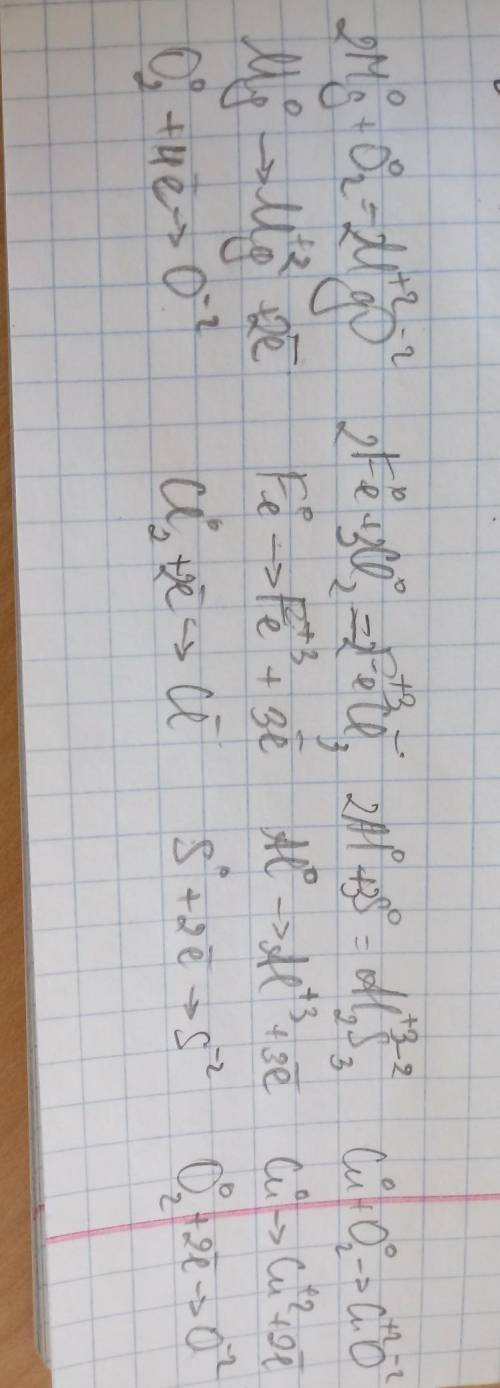 2Mg⁰ + O₂⁰ = 2Mg⁺²O⁻²
Mg⁰ → Mg⁺² + 2ē
O₂⁰ + 4ē → O⁻²
2Fe⁰ + 3Cl₂⁰ = 2Fe⁺³Cl₃⁻
Fe⁰ → Fe⁺³ + 3ē
Cl₂⁰ + 2ē → Cl⁻
2Al⁰ + 3S⁰ = Al₂⁺³S₃⁻²
Al⁰ → Al⁺³ + 3ē
S⁰ + 2ē → S⁻²
Cu⁰ + O₂⁰ → Cu⁺²O⁻²
Cu⁰ → Cu⁺² + 2ē
O₂⁰ + 2ē → O⁻²